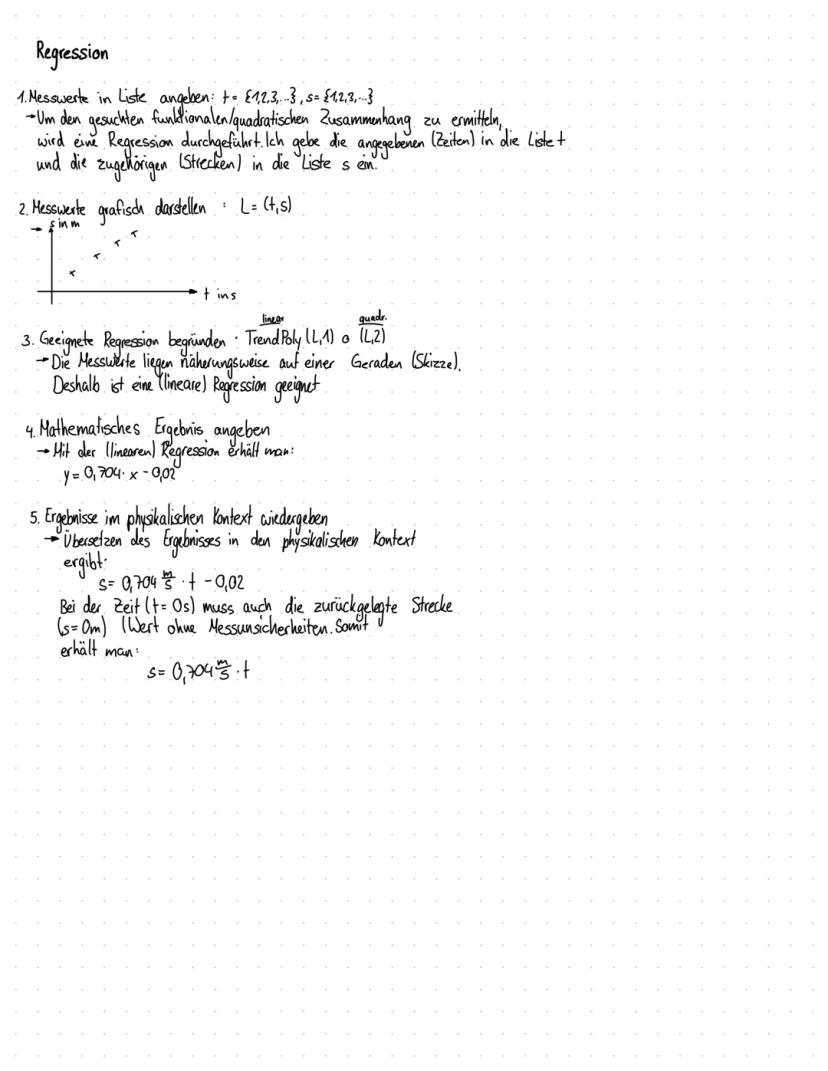 Regression
1. Messwerte in Liste angeben: t = {1,2,3,...}, s= {1,2,3,...}
→ Um den gesuchten funktionalen/quadratischen Zusammenhang zu ermitteln,
wird eine Regression durchgeführt. Ich gebe die angegebenen (Zeiten) in die Liste t
und die zugehörigen (Strecken) in die Liste s ein.
2. Messwerte grafisch darstellen : L = (t,s)
→ s in m
t in s
linear quadr.
3. Geeignete Regression begründen · TrendPoly (L,1) o (L,2)
→ Die Messwerte liegen näherungsweise auf einer Geraden (Skizze).
Deshalb ist eine (lineare) Regression geeignet
4. Mathematisches Ergebnis angeben
→ Mit der (linearen) Regression erhält man:
y = 0,704 · x - 0,02
5. Ergebnisse im physikalischen Kontext wiedergeben
→ Übersetzen des Ergebnisses in den physikalischen Kontext
ergibt:
s = 0,704 m/s · t - 0,02
Bei der Zeit (t = 0s) muss auch die zurückgelegte Strecke
(s = 0m) (Wert ohne Messunsicherheiten. Somit
erhält man:
s = 0,704 m/s · t